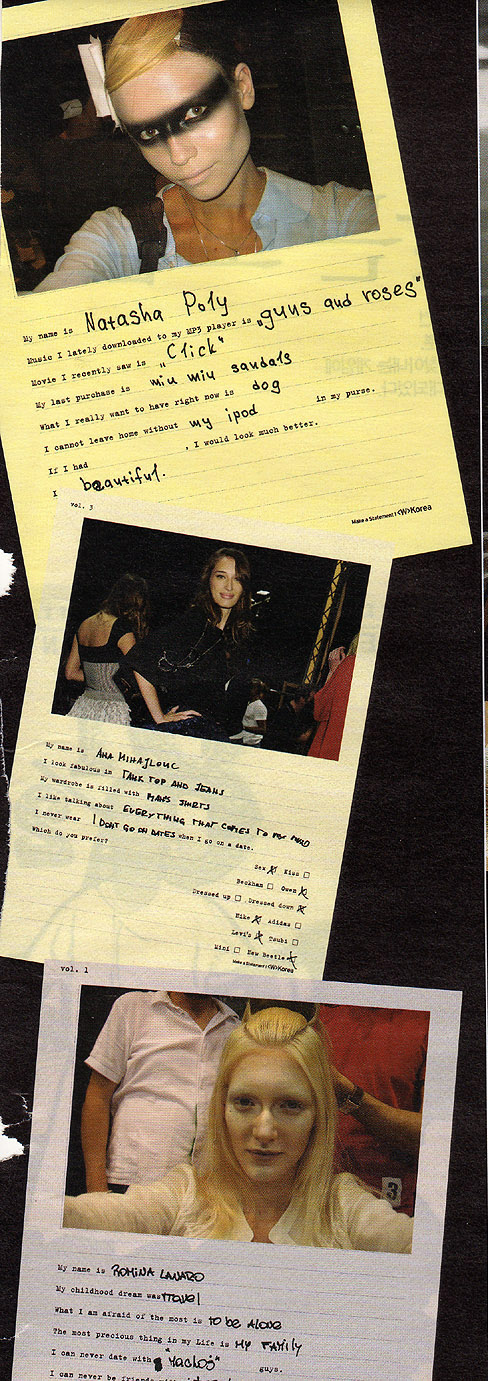 My name is Natasha Poly
Music I lately downloaded to my MP3 player is "guns and roses"
Movie I recently saw is "Click"
My last purchase is miu miu sandals
What I really want to have right now is dog
I cannot leave home without my ipod in my purse.
If I had , I would look much better.
I beautiful.
Make a Statement! <W>Korea
vol. 3
My name is ANA MIHAJLOVIC
I look fabulous in TANK TOP AND JEANS
My wardrobe is filled with MANS SHIRTS
I like talking about EVERYTHING THAT COMES TO MY MIND
I never wear I DONT GO ON DATES when I go on a date.
Which do you prefer?
Sex ☒ Kiss ☐
Beckham ☐ Owen ☒
Dressed up ☐ Dressed down ☒
Nike ☒ Adidas ☐
Levi's ☒ Tsubi ☐
Mini ☐ New Beetle ☒
Make a Statement! <W>Korea
vol. 1
3
My name is ROMINA LANARO
My childhood dream was travel
What I am afraid of the most is to be ALONE
The most precious thing in my Life is MY FAMILY
I can never date with "Machos" guys.
I can never be friends